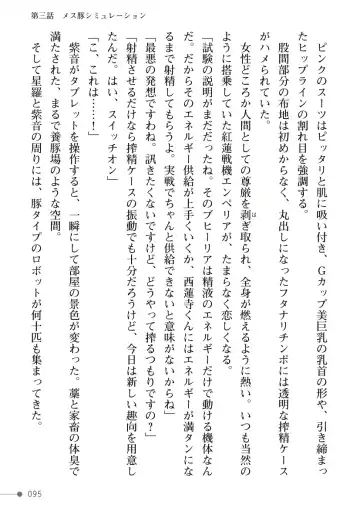 第三話　メス豚シミュレーション
　ピンクのスーツはピッタリと肌に吸い付き、Gカップ美巨乳の乳首の形や、引き締まっ
たヒップラインの割れ目を強調する。
　股間部分の布地は初めからなく、丸出しになったフタナリチンポには透明な搾精ケース
がハメられていた。
　女性どころか人間としての尊厳を剥ぎ取られ、全身が燃えるように熱い。いつも当然の
ように搭乗していた紅蓮戦機エンペリアが、たまらなく恋しくなる。
「試験の説明がまだだったね。そのブヒーリアは精液のエネルギーだけで動ける機体なん
だ。だからそのエネルギー供給が上手くいくか、西蓮寺くんにはエネルギーが満タンにな
るまで射精してもらうよ。実戦でちゃんと供給できないと意味がないからね」
「最悪の発想ですわね。訊きたくないですけど、どうやって搾るつもりですの？」
「射精させるだけなら搾精ケースの振動でも十分だろうけど、今日は新しい趣向を用意し
たんだ。はい、スイッチオン」
「こ、これは……！」
　紫音がタブレットを操作すると、一瞬にして部屋の景色が変わった。藁と家畜の体臭で
満たされた、まるで養豚場のような空間。
　そして星羅と紫音の周りには、豚タイプのロボットが何十匹も集まってきた。
095